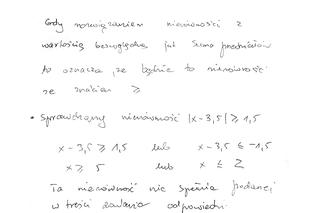 Gdy rozwiązaniem nierówności z
wartością bezwzględną jest suma przedziałów
to oznacza, że będzie to nierówność
ze znakiem ≥
• Sprawdzamy nierówność |x-3,5| ≥ 1,5
x-3,5 ≥ 1,5 lub x-3,5 ≤ -1,5
x ≥ 5 lub x ≤ 2
Ta nierówność nie spełnia podanej
w treści zadania odpowiedzi.